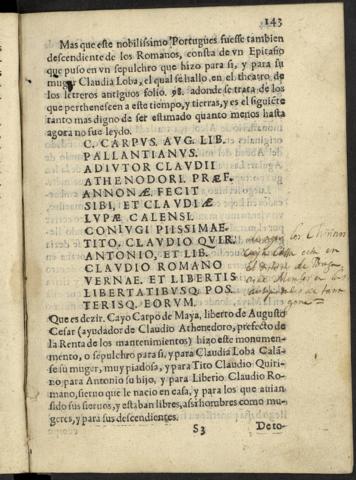 143
Mas que este nobilissimo Portugues fuesse tambien
descendiente de los Romanos, consta de vn Epitafio
que puso en vn sepulchro que hizo para si, y para su
muger Claudia Loba, el qual se hallo en el theatro de
los letreros antiguos folio. 98. adonde se trata de los
que perthenescen a este tiempo, y tierras, y es el siguiẽte
tanto mas digno de ser estimado quanto menos hasta
agora no fue leydo.
C. CARPVS. AVG. LIB.
PALLANTIANVS.
ADIVTOR CLAVDII
ATHENODORI. PRÆF.
ANNONÆ. FECIT
SIBI, ET CLAVDIÆ
LVPÆ CALENSI.
CONIVGI PIISSIMAE.
TITO, CLAVDIO QVIR.
ANTONIO, ET LIB.
CLAVDIO ROMANO
VERNAE. ET LIBERTIS
LIBERTATIBVSQ; POS
TERISQ; EORVM.
los
esta en
de Braga
Que es dezir. Cayo Carpo de Maya, liberto de Augusto
Cesar (ayudador de Claudio Athenedoro, prefecto de
la Renta de los mantenimientos) hizo este monumen-
mento, o sepulchro para si, y para Claudia Loba Calẽ-
se su muger, muy piadosa, y para Tito Claudio Quiri-
no para Antonio su hijo, y para Liberio Claudio Ro-
mano, sieruo que le nacio en casa, y para los que auian
sido sus sieruos, y estaban libres, assi hombres como mu-
geres, y para sus descendientes.
S3 Deto-